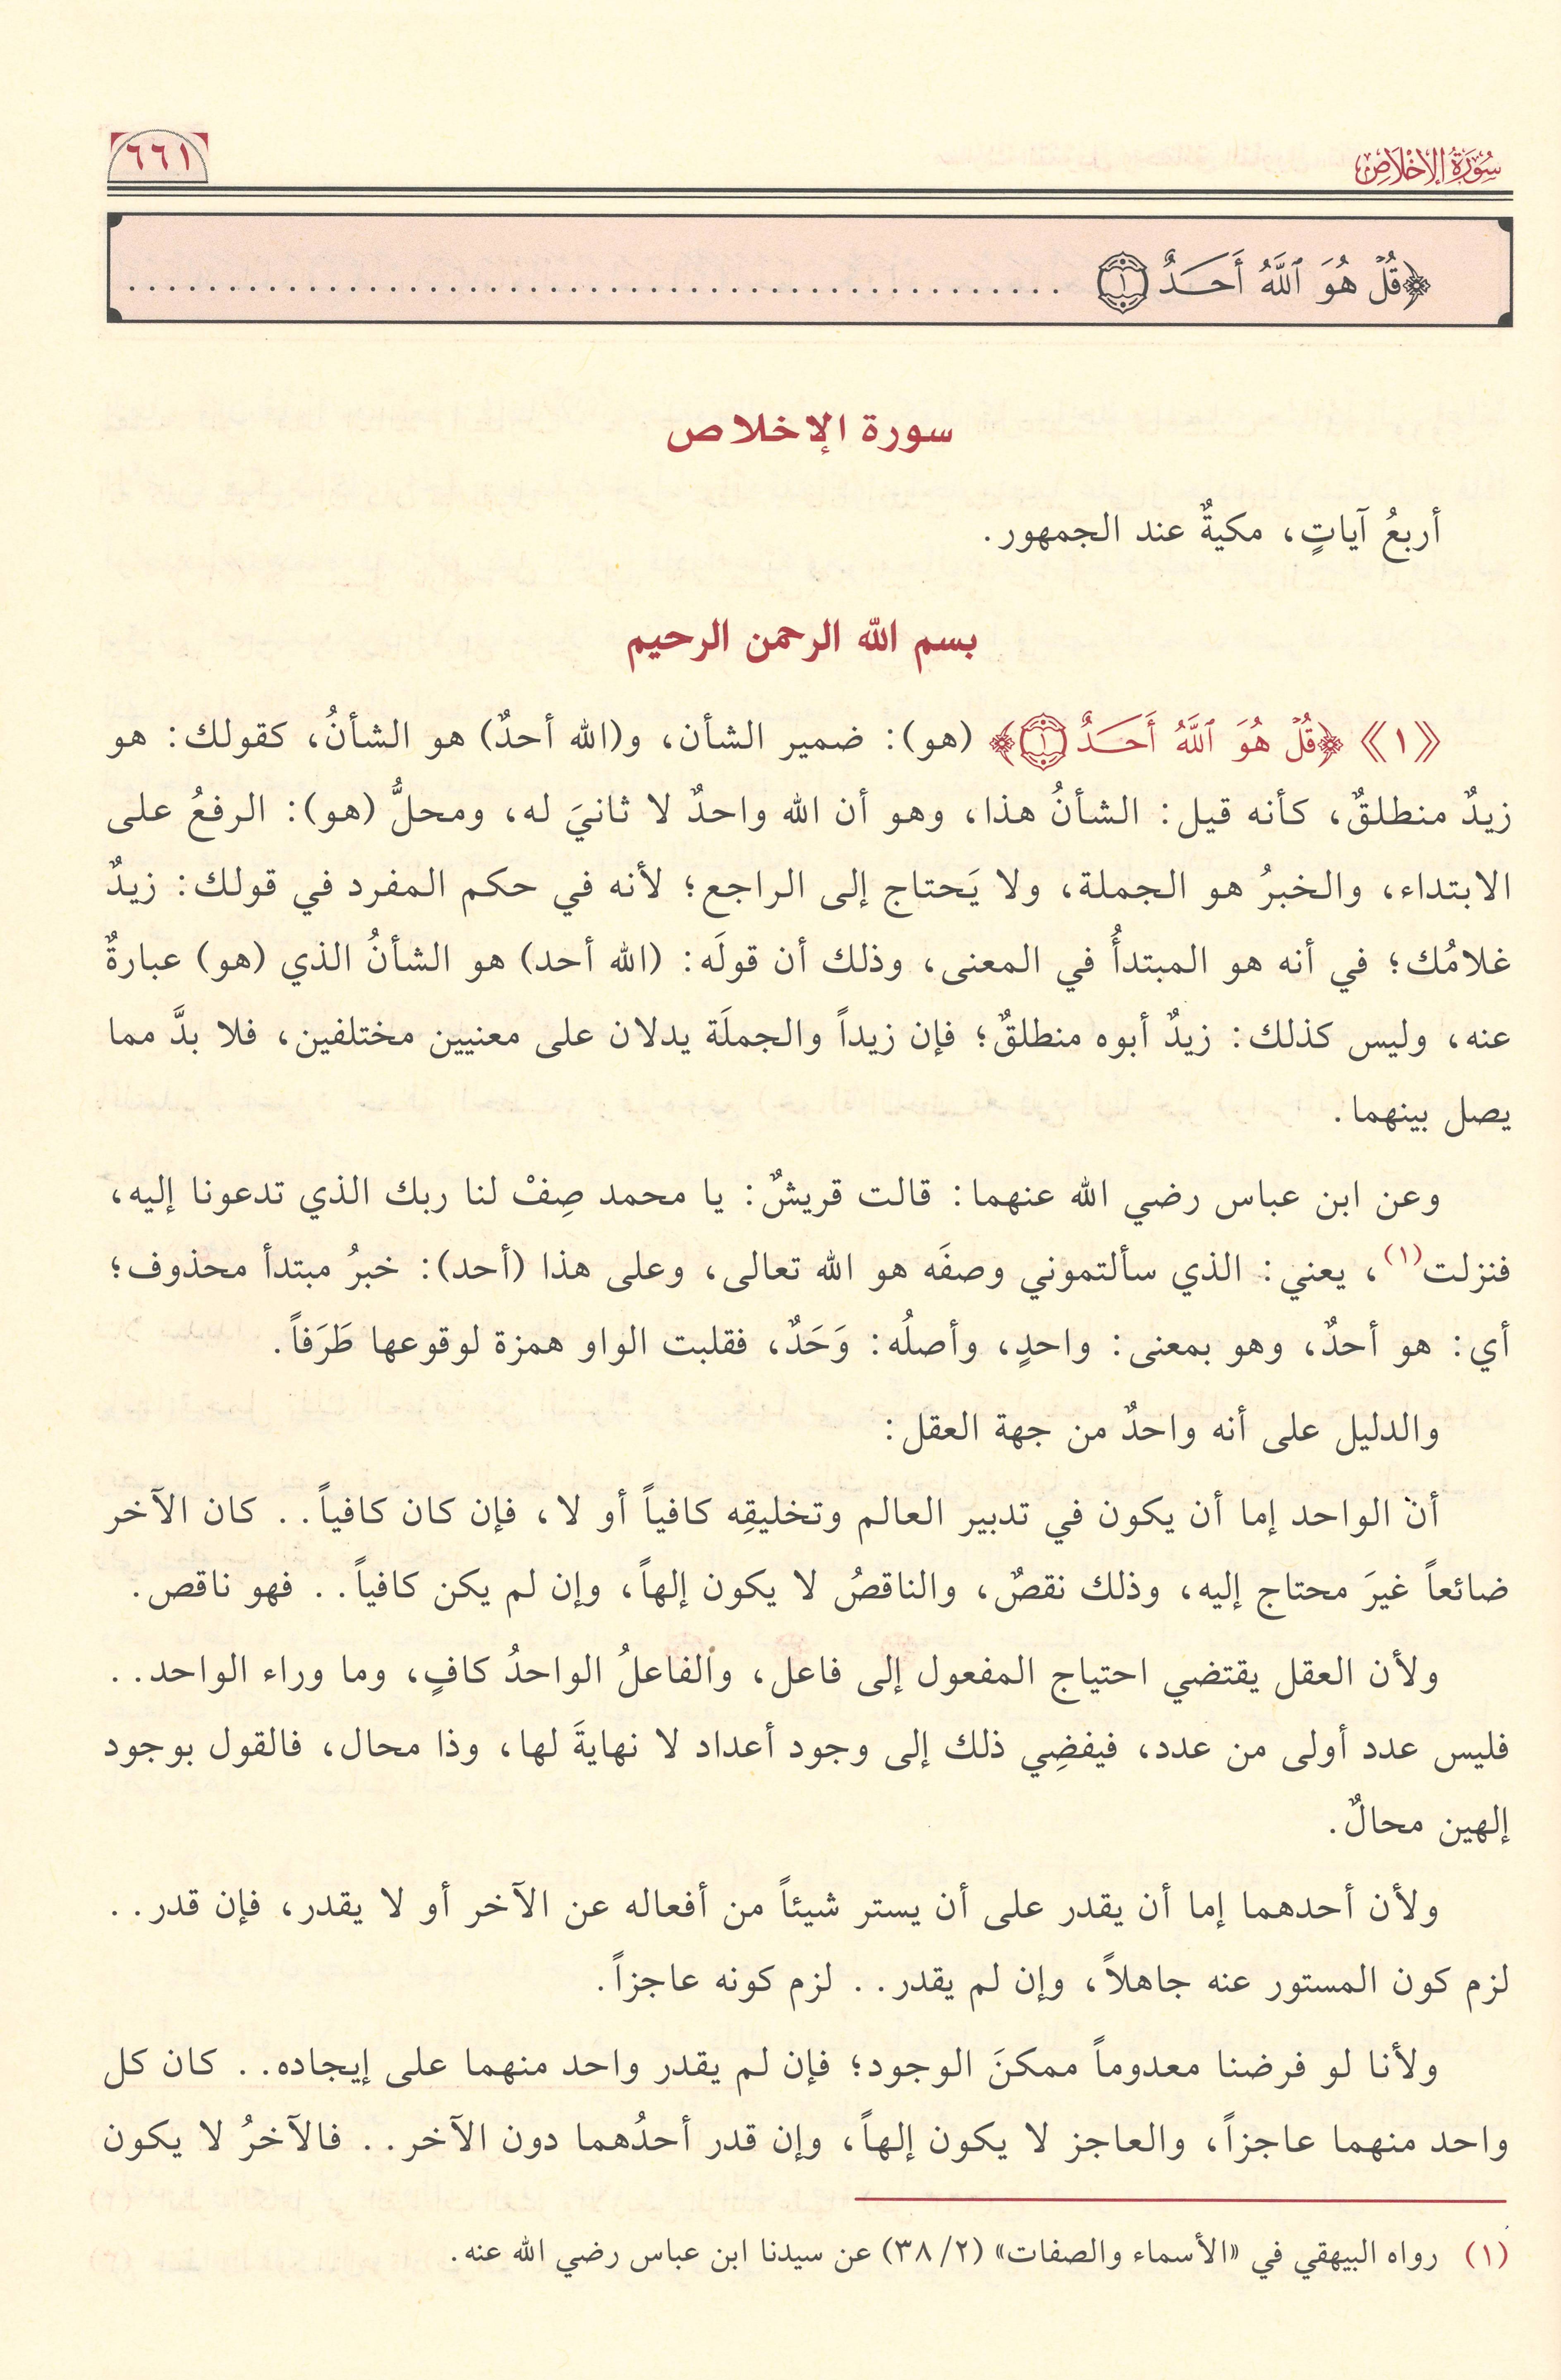 سُورَةُ الإِخْلَاصِ
٦٦١
﴿قُلْ هُوَ ٱللَّهُ أَحَدٌ ١ ................................................
سورة الإخلاص
أربعُ آياتٍ، مكيةٌ عند الجمهور.
بسم الله الرحمن الرحيم
《١》 ﴿قُلْ هُوَ ٱللَّهُ أَحَدٌ ١﴾ (هو): ضمير الشأن، و(الله أحدٌ) هو الشأنُ، كقولك: هو
زيدٌ منطلقٌ، كأنه قيل: الشأنُ هذا، وهو أن الله واحدٌ لا ثانيَ له، ومحلُّ (هو): الرفعُ على
الابتداء، والخبرُ هو الجملة، ولا يَحتاج إلى الراجع؛ لأنه في حكم المفرد في قولك: زيدٌ
غلامُك؛ في أنه هو المبتدأُ في المعنى، وذلك أن قولَه: (الله أحد) هو الشأنُ الذي (هو) عبارةٌ
عنه، وليس كذلك: زيدٌ أبوه منطلقٌ؛ فإن زيداً والجملَة يدلان على معنيين مختلفين، فلا بدَّ مما
يصل بينهما.
وعن ابن عباس رضي الله عنهما: قالت قريشٌ: يا محمد صِفْ لنا ربك الذي تدعونا إليه،
فنزلت(١)، يعني: الذي سألتموني وصفَه هو الله تعالى، وعلى هذا (أحد): خبرُ مبتدأ محذوف؛
أي: هو أحدٌ، وهو بمعنى: واحدٍ، وأصلُه: وَحَدٌ، فقلبت الواو همزة لوقوعها طَرَفاً.
والدليل على أنه واحدٌ من جهة العقل:
أن الواحد إما أن يكون في تدبير العالم وتخليقِه كافياً أو لا، فإن كان كافياً.. كان الآخر
ضائعاً غيرَ محتاج إليه، وذلك نقصٌ، والناقصُ لا يكون إلهاً، وإن لم يكن كافياً.. فهو ناقص.
ولأن العقل يقتضي احتياج المفعول إلى فاعل، والفاعلُ الواحدُ كافٍ، وما وراء الواحد..
فليس عدد أولى من عدد، فيفضِي ذلك إلى وجود أعداد لا نهايةَ لها، وذا محال، فالقول بوجود
إلهين محالٌ.
ولأن أحدهما إما أن يقدر على أن يستر شيئاً من أفعاله عن الآخر أو لا يقدر، فإن قدر..
لزم كون المستور عنه جاهلاً، وإن لم يقدر.. لزم كونه عاجزاً.
ولأنا لو فرضنا معدوماً ممكنَ الوجود؛ فإن لم يقدر واحد منهما على إيجاده.. كان كل
واحد منهما عاجزاً، والعاجز لا يكون إلهاً، وإن قدر أحدُهما دون الآخر.. فالآخرُ لا يكون
(١) رواه البيهقي في «الأسماء والصفات» (٣٨/٢) عن سيدنا ابن عباس رضي الله عنه.